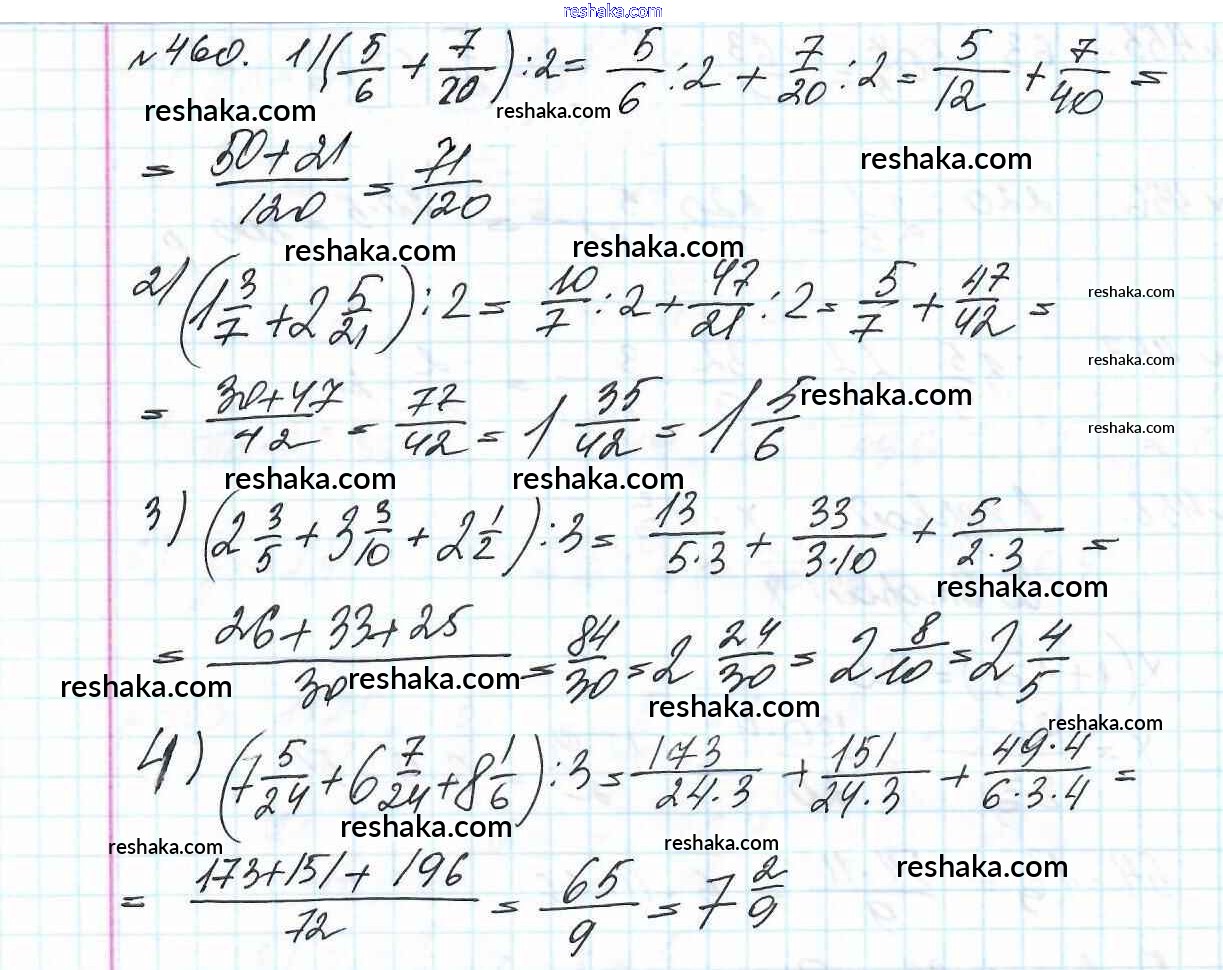 reshaka.com
№460. 1) (5/6 + 7/20) : 2 = 5/6 : 2 + 7/20 : 2 = 5/12 + 7/40 =
reshaka.com reshaka.com
reshaka.com
= (50+21)/120 = 71/120
reshaka.com reshaka.com
2) (1 3/7 + 2 5/21) : 2 = 10/7 : 2 + 47/21 : 2 = 5/7 + 47/42 =
reshaka.com
reshaka.com
= (30+47)/42 = 77/42 = 1 35/42 = 1 5/6
reshaka.com
reshaka.com
reshaka.com reshaka.com
3) (2 3/5 + 3 3/10 + 2 1/2) : 3 = 13/(5·3) + 33/(3·10) + 5/(2·3) =
reshaka.com
= (26+33+25)/30 = 84/30 = 2 24/30 = 2 8/10 = 2 4/5
reshaka.com reshaka.com
reshaka.com
reshaka.com
4) (7 5/24 + 6 7/24 + 8 1/6) : 3 = 173/(24·3) + 151/(24·3) + (49·4)/(6·3·4) =
reshaka.com
reshaka.com reshaka.com
reshaka.com
= (173+151+196)/72 = 65/9 = 7 2/9